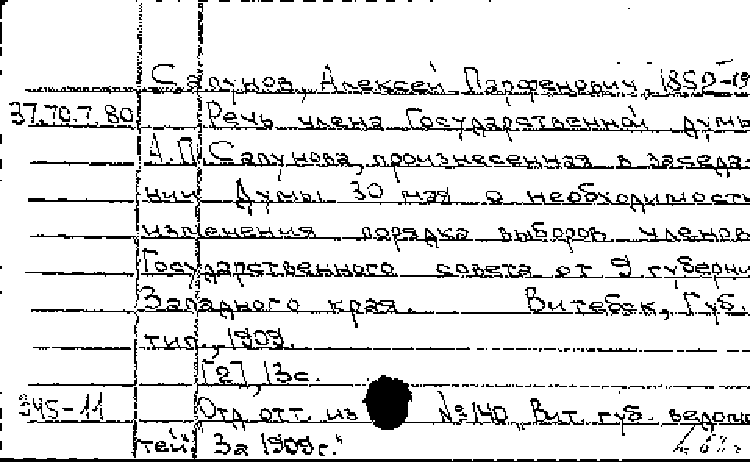 Сапунов, Алексей Парфенович, 1852-19
37.70.7.80 Речь члена Государственной думы
А.П. Сапунова, произнесенная в заседа-
нии Думы 30 мая о необходимост
изменения порядка выборов членов
Государственного совета от 9 губерни
Западного края. Витебск, Губ.
тип., 1909.
[2], 13 с.
345-11 Отд. отт. из № 140 "Вит. губ. ведомос
тей" за 1909 г."